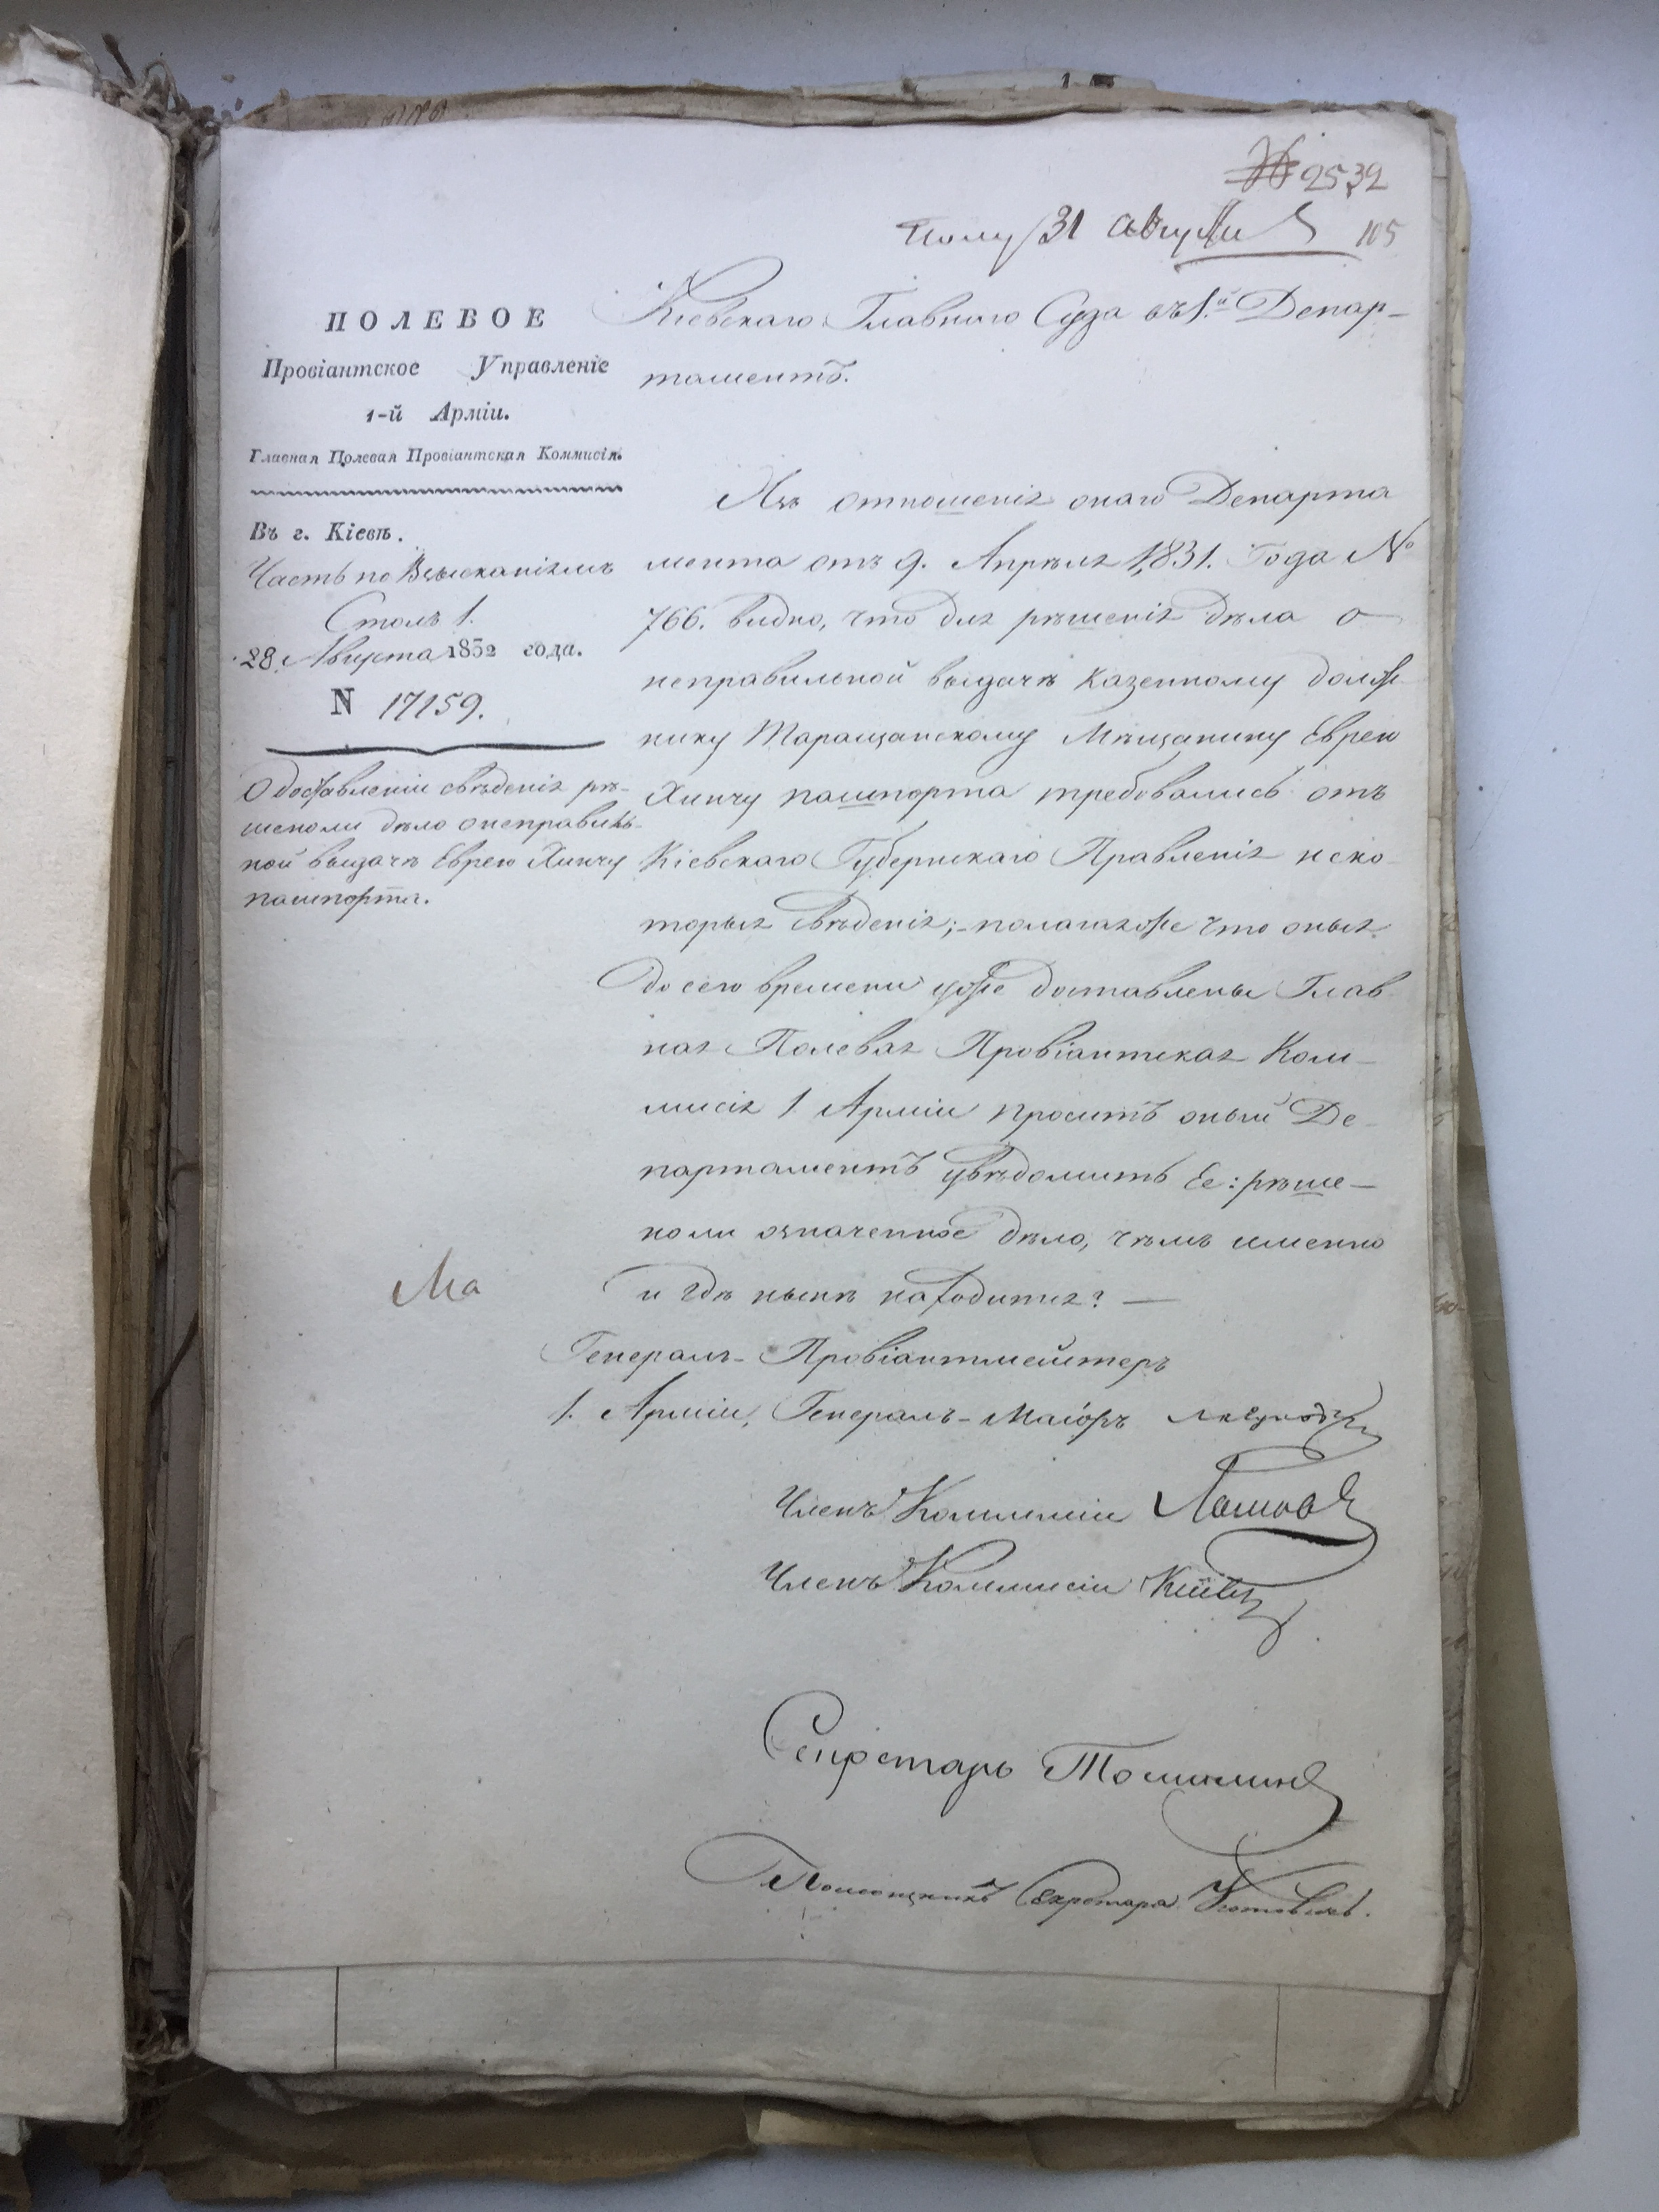 2532
Полу 31 Августа 105
ПОЛЕВОЕ
Провіантское Управленіе
1-й Арміи.
Главная Полевая Провіантская Коммисія.
Въ г. Кіевѣ.
Часть по Взысканіямъ
Столъ 1.
28. Августа 1832 года.
N 17159.
О доставленіи свѣденія рѣ-
шеноли дѣло о неправиль-
ной выдачѣ Еврею Хинчу
пашпорта.
Кіевскаго Главнаго Суда въ 1.й Депар-
таментъ.
Изъ отношенія онаго Департа
мента отъ 9. Апрѣля 1831. Года №
766. видно, что для рѣшенія дѣла о
неправильной выдачѣ казенному долж
нику Таращанскому Мѣщанину Еврею
Хинчу пашпорта требовались отъ
Кіевскаго Губернскаго Правленія неко
торыя свѣденія; полагая же что оныя
до сего времени уже доставлены Глав
ная Полевая Провіантская Ком-
мисія 1 Арміи проситъ оный Де-
партаментъ увѣдомить Ее: рѣше-
но ли означенное дѣло, чѣмъ именно
и гдѣ нынѣ находится? —
Ма
Генералъ-Провіантмейстеръ
1. Арміи, Генералъ-Маіоръ
Членъ Коммисіи
Членъ Коммисіи
Секретарь Томилинъ
Помощникъ Секретаря